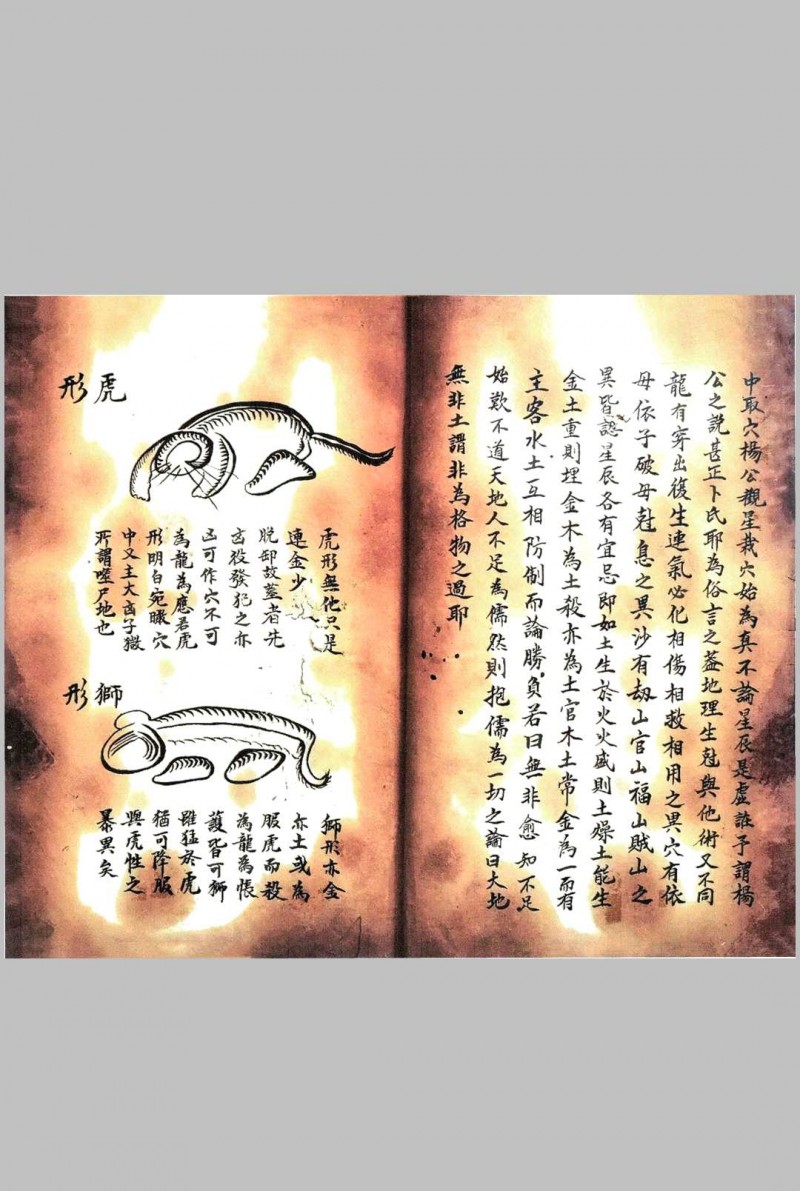 中取穴楊公觀星裁穴始為真不論星辰是虛誑予謂楊
公之説甚正卜氏耶為俗言之蓋地理生尅與他術又不同
龍有穿出復生連氣必化相傷相救相用之異穴有依
母依子破母尅息之異沙有刼山官山福山賊山之
異皆認星辰各有宜忌即如土生於火火盛則土燥土能生
金土重則埋金木為土殺亦為土官木土常金為一而有
主客水土互相防制而論勝負若曰無非愈知不足
始歎不道天地人不足為儒然則抱儒為一切之論曰大地
無非土謂非為格物之過耶
虎形
虎形無他只是
連金少
脱卸故葢者先
凶殺發犯之亦
凶可作穴不可
為龍為應君虎
形明白宛瞰穴
中又主大凶子微
所謂噬尸地也
獅形
獅形亦金
亦土或為
服虎而殺
為龍為帳
護皆可獅
雖猛於虎
猶可降服
與虎性之
暴異矣